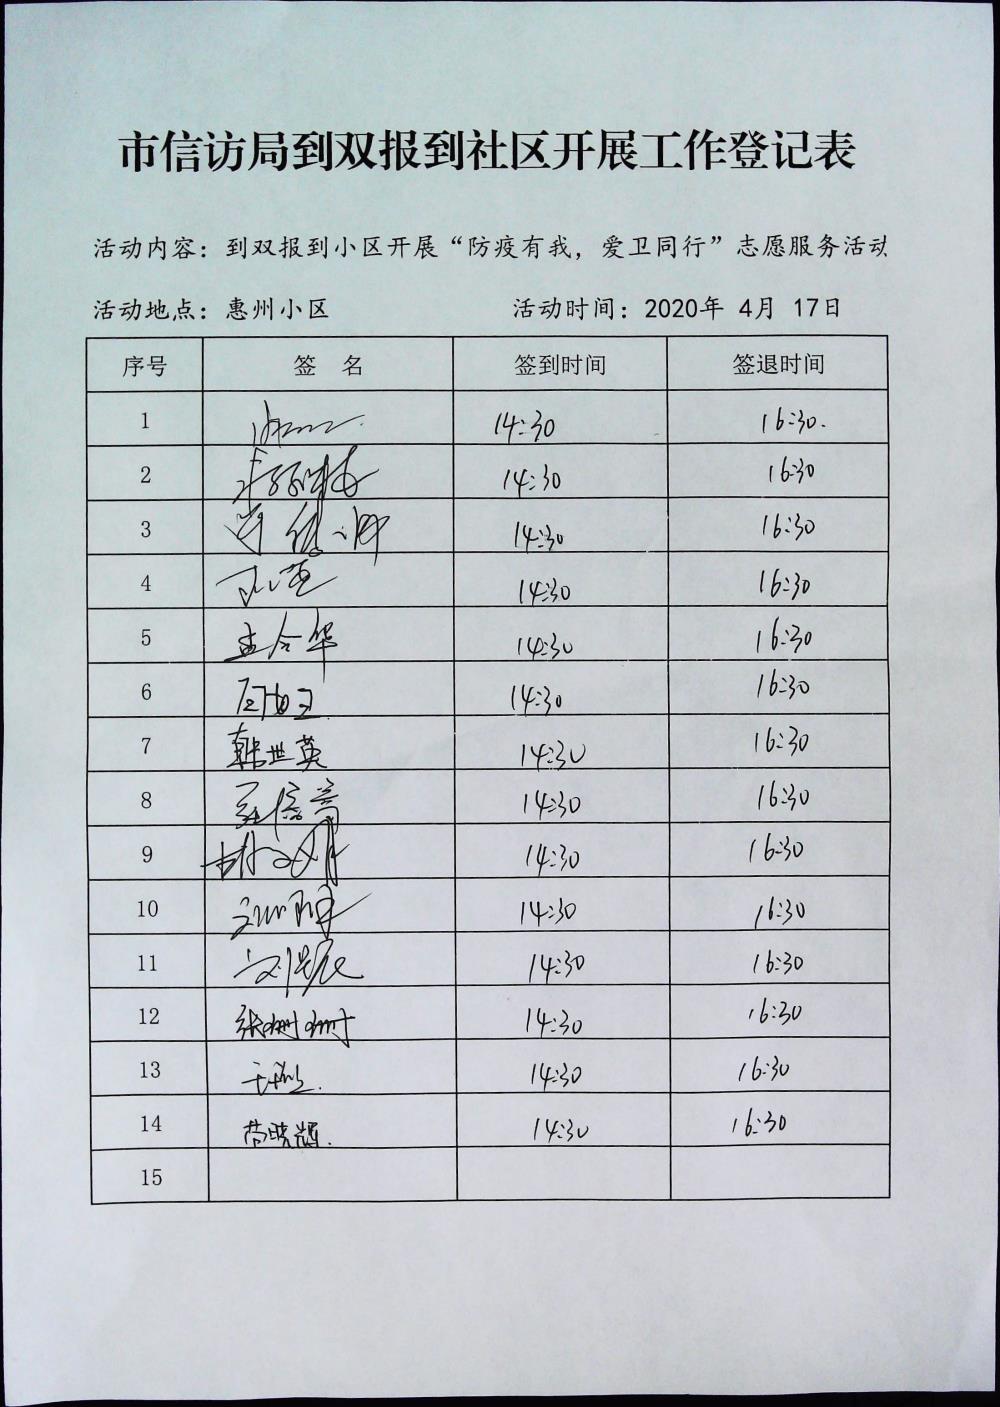 市信访局到双报到社区开展工作登记表
活动内容：到双报到小区开展“防疫有我，爱卫同行”志愿服务活动
活动地点：惠州小区 活动时间：2020年 4月 17日
序号 签 名 签到时间 签退时间
1 14:30 16:30.
2 14:30 16:30
3 14:30 16:30
4 14:30 16:30
5 14:30 16:30
6 14:30 16:30
7 韩世英 14:30 16:30
8 14:30 16:30
9 14:30 16:30
10 14:30 16:30
11 14:30 16:30
12 张珊珊 14:30 16:30
13 14:30 16:30
14 14:30 16:30
15